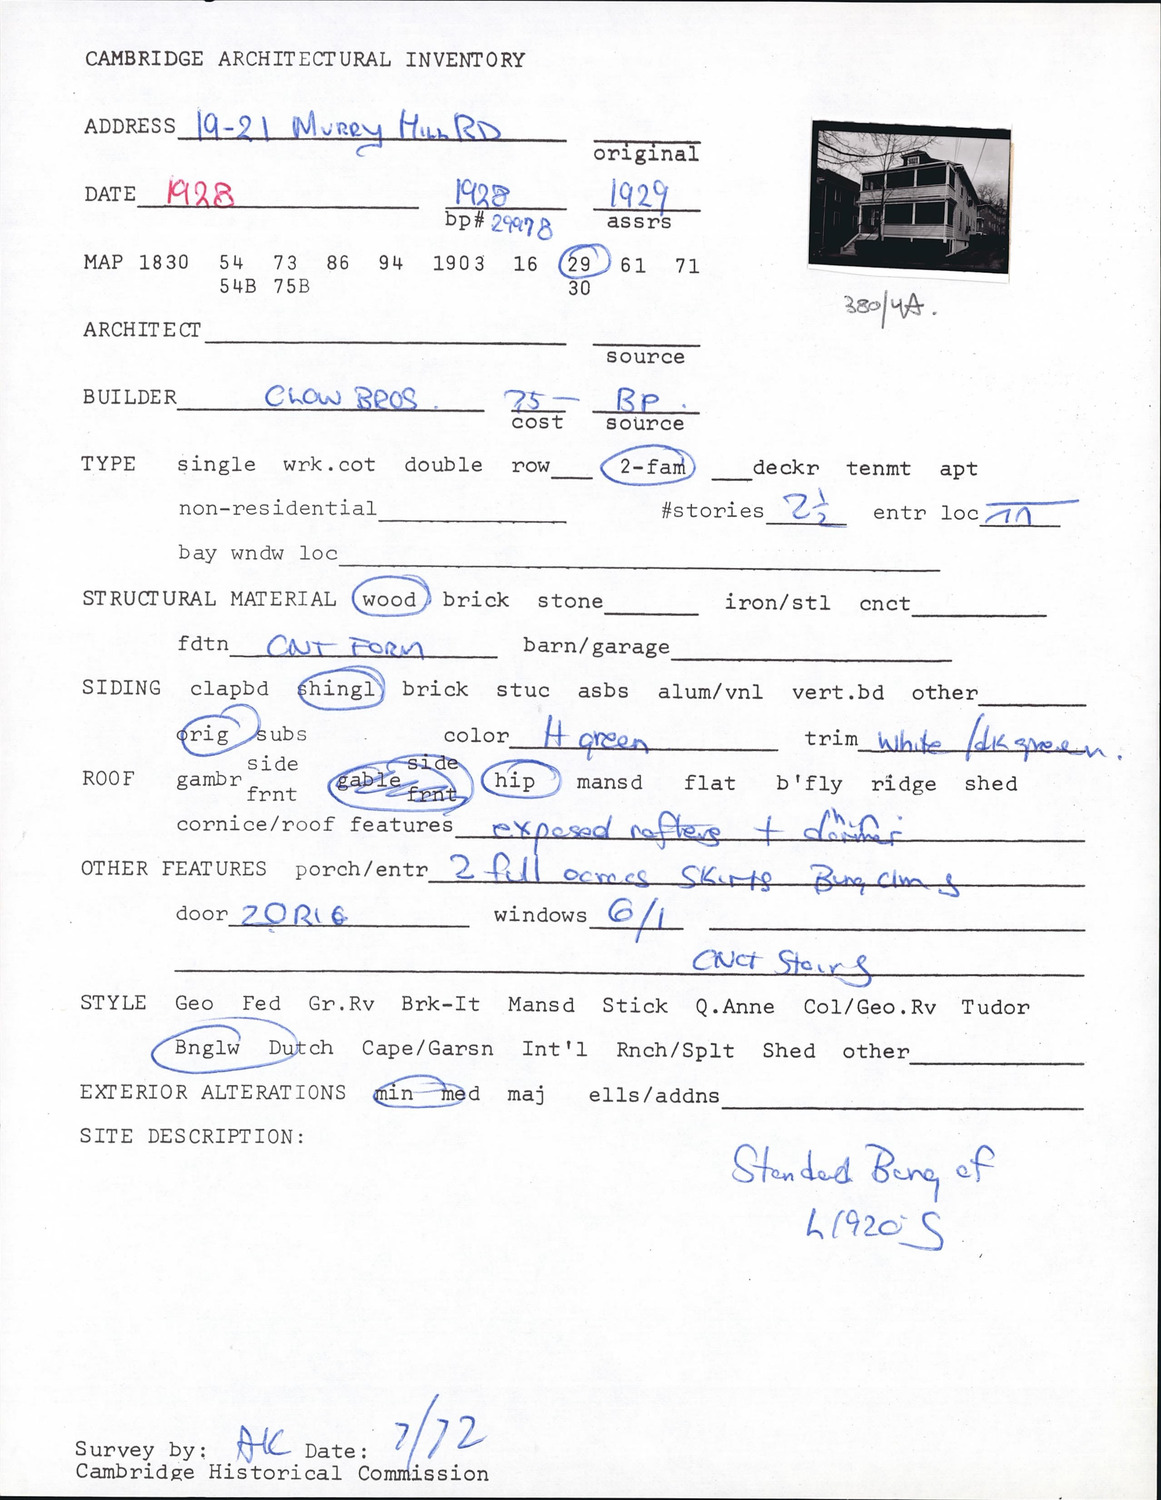 CAMBRIDGE ARCHITECTURAL INVENTORY
ADDRESS 19-21 MURRY HILL RD
original
DATE 1928 1928 1929
bp# 29978 assrs
MAP 1830 54 73 86 94 1903 16 29 61 71
54B 75B 30
380/4A.
ARCHITECT
source
BUILDER CLOW BROS. 75— BP.
cost source
TYPE single wrk.cot double row 2-fam deckr tenmt apt
non-residential #stories 2½ entr loc
bay wndw loc
STRUCTURAL MATERIAL wood brick stone iron/stl cnct
fdtn CNT FORM barn/garage
SIDING clapbd shingl brick stuc asbs alum/vnl vert.bd other
orig subs color green trim white /dk green.
side side
ROOF gambr gable hip mansd flat b'fly ridge shed
frnt frnt
cornice/roof features exposed rafters + dormer
OTHER FEATURES porch/entr 2 full across skirts
door 2 ORIG windows 6/1
CNCT Stairs
STYLE Geo Fed Gr.Rv Brk-It Mansd Stick Q.Anne Col/Geo.Rv Tudor
Bnglw Dutch Cape/Garsn Int'l Rnch/Splt Shed other
EXTERIOR ALTERATIONS min med maj ells/addns
SITE DESCRIPTION:
Standard Bung of
L1920's
Survey by: AK Date: 7/72
Cambridge Historical Commission